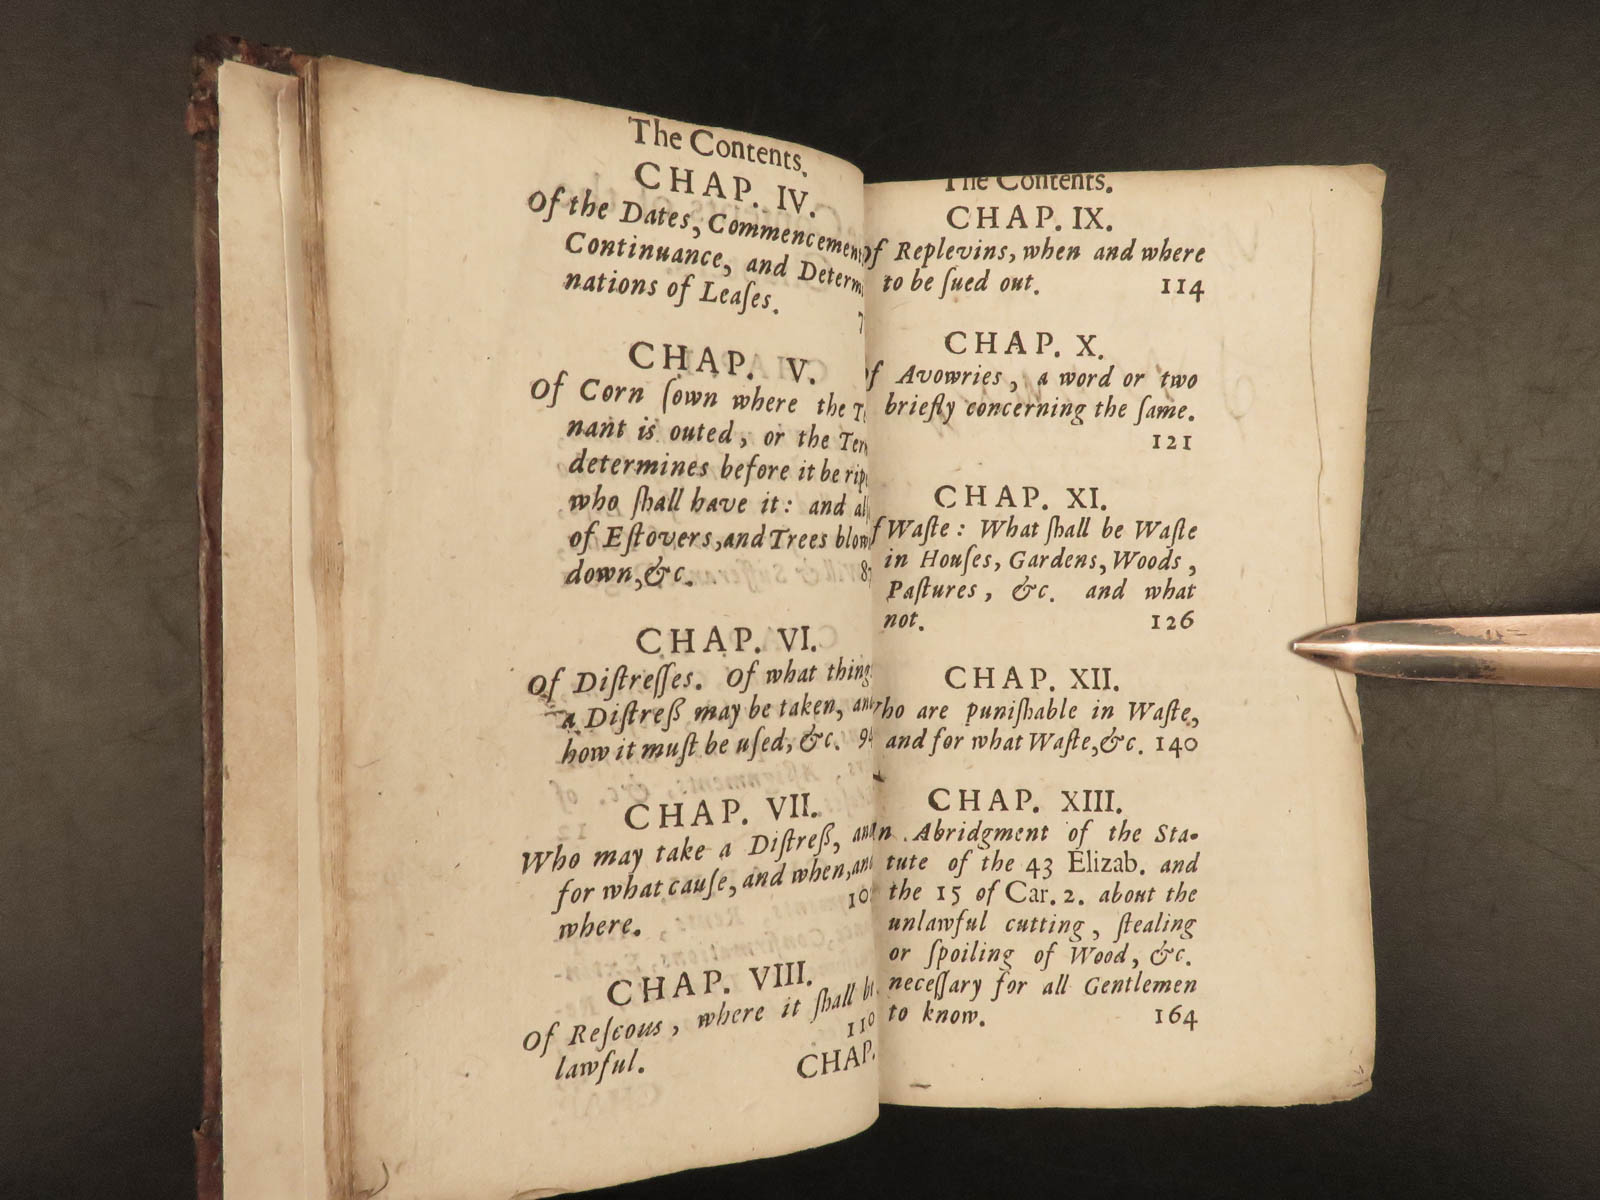 The Contents.
CHAP. IV.
Of the Dates, Commencement
Continuance, and Determi
nations of Leaſes.
7
CHAP. V.
Of Corn ſown where the Te
nant is outed, or the Term
determines before it be ripe
who ſhall have it: and alſ
of Eſtovers, and Trees blow
down, &c. 87
CHAP. VI.
Of Diſtreſſes. Of what things
a Diſtreß may be taken, and
how it muſt be uſed, &c. 94
CHAP. VII.
Who may take a Diſtreß, and
for what cauſe, and when, and
where. 10
CHAP. VIII.
Of Reſcous, where it ſhall be
lawful. 110
CHAP.
The Contents.
CHAP. IX.
Of Replevins, when and where
to be ſued out. 114
CHAP. X.
Of Avowries, a word or two
briefly concerning the ſame.
121
CHAP. XI.
f Waſte: What ſhall be Waſte
in Houſes, Gardens, Woods,
Paſtures, &c. and what
not. 126
CHAP. XII.
ho are puniſhable in Waſte,
and for what Waſte, &c. 140
CHAP. XIII.
n Abridgment of the Sta-
tute of the 43 Elizab. and
the 15 of Car. 2. about the
unlawful cutting, ſtealing
or ſpoiling of Wood, &c.
neceſſary for all Gentlemen
to know. 164